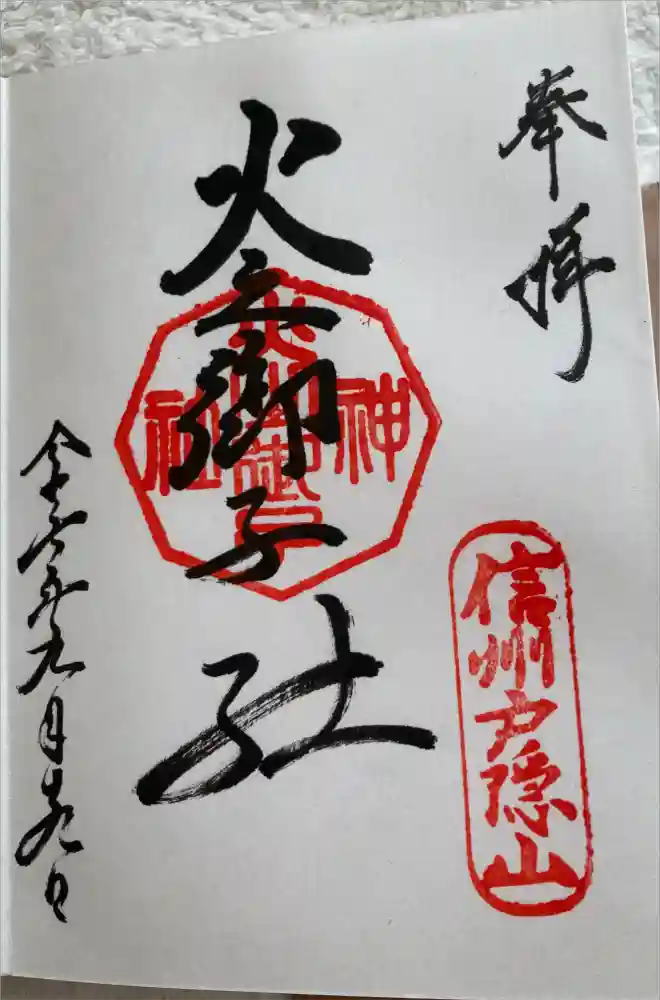 奉拝
信州戸隠山
火之御子社
神社
令和六年九月